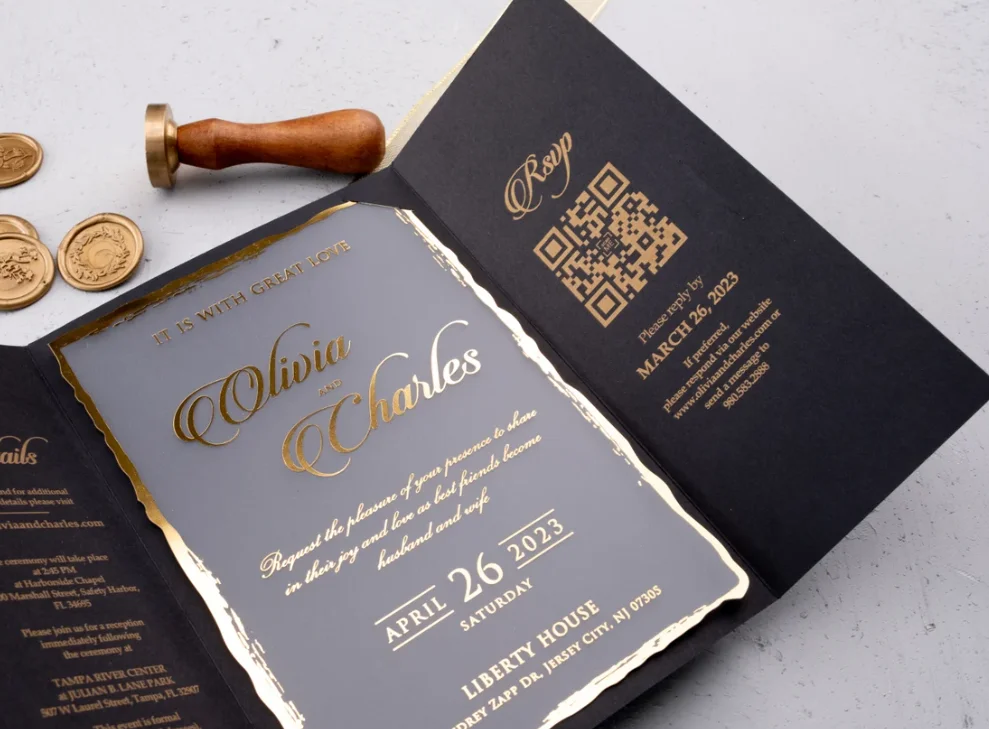 ails
nd for additional
details please visit
viaandcharles.com
ceremony will take place
at 2:45 PM
at Harborside Chapel
Marshall Street, Safety Harbor,
FL 34695
Please join us for a reception
immediately following
the ceremony at
TAMPA RIVER CENTER
at JULIAN B. LANE PARK
507 W Laurel Street, Tampa, FL 32907
This event is formal
IT IS WITH GREAT LOVE
Olivia
AND
Charles
Request the pleasure of your presence to share
in their joy and love as best friends become
husband and wife
APRIL 26 2023
SATURDAY
LIBERTY HOUSE
DREY ZAPP DR, JERSEY CITY, NJ 07305
Rsvp
Please reply by
MARCH 26, 2023
If preferred,
please respond via our website
www.oliviaandcharles.com or
send a message to
980.583.2888